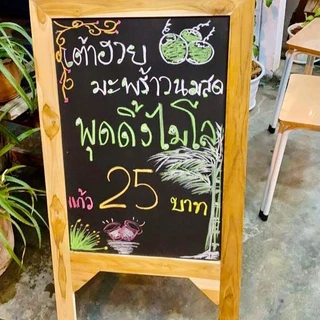 เต้าฮวย
มะพร้าวนมสด
พุดดิ้งไมโล
แก้ว 25 บาท